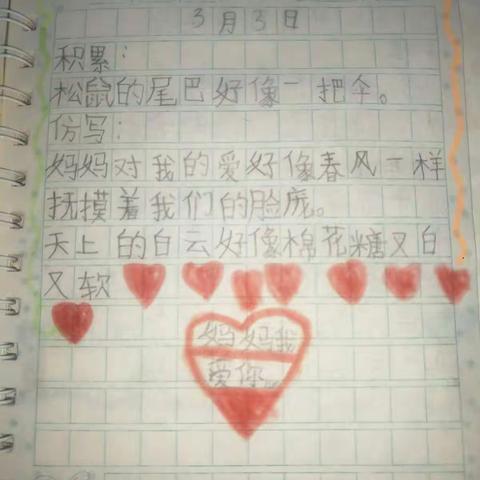 3月3日
积累:
松鼠的尾巴好像一把伞。
仿写:
妈妈对我的爱好像春风一样
抚摸着我们的脸庞。
天上的白云好像棉花糖又白
又软
妈妈我
爱你